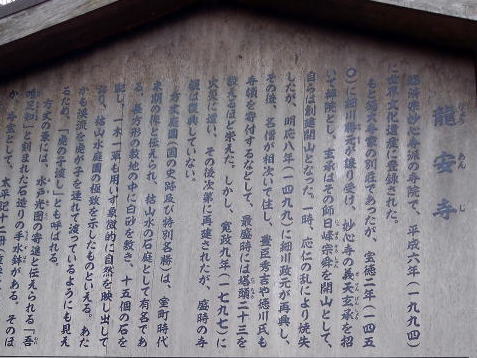 龍安寺
りょうあんじ
臨済宗妙心寺派の寺院で、平成六年（一九九四）
に世界文化遺産に登録された。
もと徳大寺家の別荘であったが、宝徳二年（一四五
〇）に細川勝元が譲り受け、妙心寺の義天玄承を招
いて禅院とし、玄承はその師日峰宗舜を開山として、
自らは創建開山となった。一時、応仁の乱により焼失
したが、明応八年（一四九九）に細川政元が再興し、
その後、名僧が相次いで住し、豊臣秀吉や徳川氏も
寺領を寄付するなどして、最盛時には塔頭二十三を
数えるほど栄えた。しかし、寛政九年（一七九七）に
火災に遭い、その後次第に再建されたが、盛時の寺
観は復興していない。
方丈庭園（国の史跡及び特別名勝）は、室町時代
末期の作と伝えられ、枯山水の石庭として有名であ
る。長方形の敷地の中に白砂を敷き、十五個の石を
配し、一木一草も用いず象徴的に自然を映し出して
おり、枯山水庭園の極致を示したものといえる。あた
かも渓流を虎が子を連れて渡っているようにも見え
るため、「虎の子渡し」とも呼ばれる。
方丈の裏には、水戸光圀の寄進と伝えられる「吾
唯足知」と刻まれた石造りの手水鉢がある。そのほ
か、寺宝として、太平記十二冊